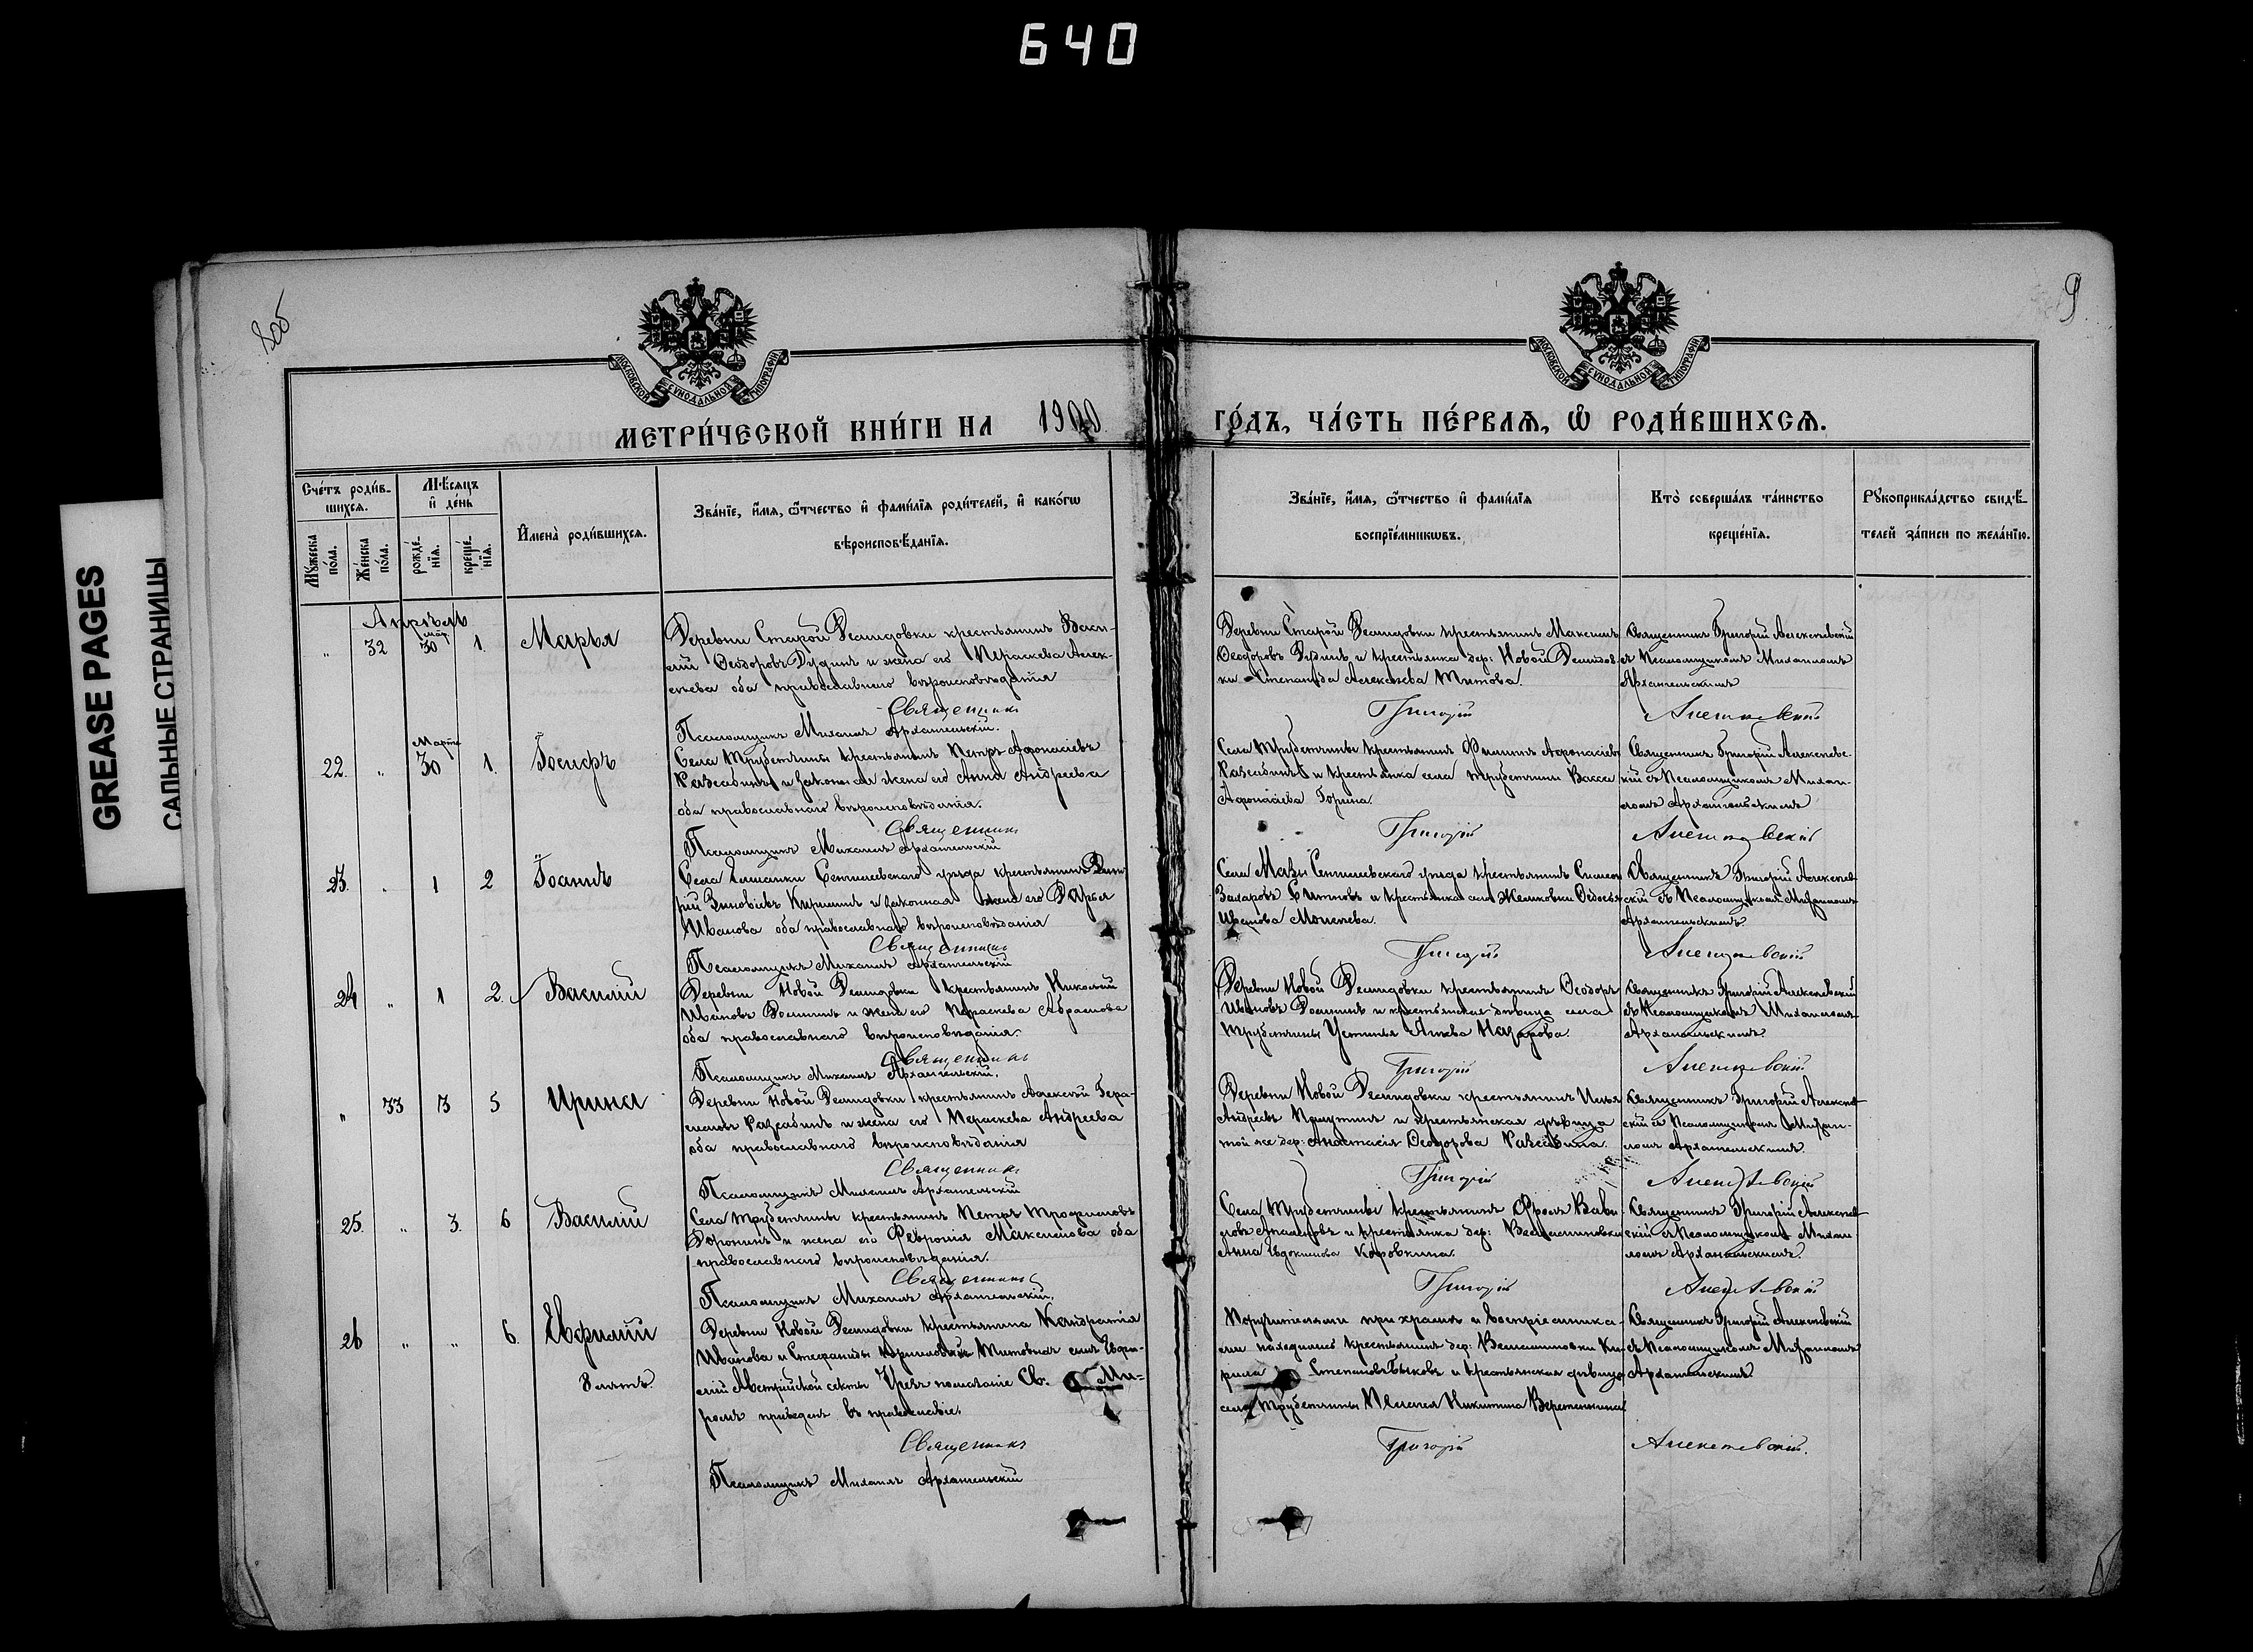 640
GREASE PAGES
САЛЬНЫЕ СТРАНИЦЫ
8об
9
МОСКОВСКОЙ СѴНОДАЛЬНОЙ ТИПОГРАФІИ
МОСКОВСКОЙ СѴНОДАЛЬНОЙ ТИПОГРАФІИ
МЕТРИ́ЧЕСКОЙ КНИ́ГИ НА 1900 ГО́ДЪ, ЧА́СТЬ ПЕ́РВАЯ, Ѽ РОДИ́ВШИХСЯ.
Сче́тъ роди́в-
шихся.
Мꙋ́жеска по́ла.
Же́нска по́ла.
Мѣ́сяцъ и҆ де́нь
рожде́-
нїя.
креще́-
нїя.
И҆мена̀ роди́вшихся.
Зва́нїе, и҆́мя, ѻ҆́тчество и҆ фами́лїя роди́телей, и҆ како́гѡ
вѣроисповѣ́данїя.
Зва́нїе, и҆́мя, ѻ҆́тчество и҆ фами́лїя
воспрїе́мникѡвъ.
Кто̀ соверша́лъ та́инство
креще́нїя.
Рꙋкоприкла́дство свидѣ́-
телей за́писи по жела́нїю.
Апрѣль
„ 32 мар. 30 1. Марья
Деревни Старой Демидовки крестьянинъ Васи-
лій Ѳеодоровъ Дудинъ и жена его Параскева Алек-
сѣева оба православнаго вѣроисповѣданія
Священникъ
Псаломщикъ Михаилъ Архангельскій.
Деревни Старой Демидовки крестьянинъ Максимъ
Ѳеодоровъ Дудинъ и крестьянка дер: Новой Демидов-
ки Степанида Алексѣева Титова.
Григорій
Священникъ Григорій Алексѣевскій
съ Псаломщикомъ Михаиломъ
Архангельскимъ
Алексѣевскій
22. „ Марта 30 1. Іосифъ
Села Трубетчины крестьянинъ Петръ Аѳонасіевъ
и законная жена его Анна Андреева
оба православнаго вѣроисповѣданія.
Священникъ
Псаломщикъ Михаилъ Архангельскій
Села Трубетчины крестьянинъ Филиппъ Аѳонасіевъ
и крестьянка села Трубетчины Васса
Аѳонасіева Горина.
Григорій
Священникъ Григорій Алексѣевс-
кій съ Псаломщикомъ Михаи-
ломъ Архангельскимъ
Алексѣевскій
23. „ 1 2 Іоаннъ
Села Елшанки Сенгилеевскаго уѣзда крестьянинъ Дмит-
рій Зиновіевъ и законная жена его Дарья
Иванова оба православнаго вѣроисповѣданія
Священникъ
Псаломщикъ Михаилъ Архангельскій
Села Мазы Сенгилеевскаго уѣзда крестьянинъ Симеонъ
Захаровъ и крестьянка
Иванова
Григорій
Священникъ Григорій Алексѣев-
скій съ Псаломщикомъ Михаиломъ
Архангельскимъ
Алексѣевскій
24 „ 1 2. Василій
Деревни Новой Демидовки крестьянинъ Николай
Ивановъ и жена его Параскева Абрамова
оба православнаго вѣроисповѣданія.
Священникъ
Псаломщикъ Михаилъ Архангельскій.
Деревни Новой Демидовки крестьянинъ Ѳеодоръ
Ивановъ и крестьянская дѣвица села
Трубетчины Устинья Назарова.
Григорій
Священникъ Григорій Алексѣевскій
съ Псаломщикомъ Михаиломъ
Архангельскимъ.
Алексѣевскій
„ 33 3 5 Ирина
Деревни Новой Демидовки крестьянинъ Алексѣй Гера-
симовъ и жена его Параскева Андреева
оба православнаго вѣроисповѣданія
Священникъ
Псаломщикъ Михаилъ Архангельскій
Деревни Новой Демидовки крестьянинъ Илья
Андреевъ и крестьянская дѣвица
той же дер: Анастасія Ѳеодорова
Григорій
Священникъ Григорій Алексѣев-
скій съ Псаломщикомъ Михаи-
ломъ Архангельскимъ.
Алексѣевскій
25. „ 3. 6 Василій
Села Трубетчины крестьянинъ Петръ Трофимовъ
Доронинъ и жена его Февронія Максимова оба
православнаго вѣроисповѣданія.
Священникъ
Псаломщикъ Михаилъ Архангельскій.
Села Трубетчины крестьянинъ Фролъ Вави-
ловъ и крестьянка дер:
Анна Евдокимова Коровкина.
Григорій
Священникъ Григорій Алексѣев-
скій съ Псаломщикомъ Михаи-
ломъ Архангельскимъ.
Алексѣевскій
26 „ „ 6. Евфимій
8 лѣтъ.
Деревни Новой Демидовки крестьянина Кондратія
Иванова и Стефаниды Кирилловой Титовыхъ сынъ Евфи-
мій Австрійской секты Чрезъ помазаніе Св. Ми-
ромъ приведенъ въ православіе.
Священникъ
Псаломщикъ Михаилъ Архангельскій
Поручителями при храмѣ и воспріемника-
ми находились крестьянинъ дер: Ки-
рила Степановъ Быковъ и крестьянская дѣвица
села Трубетчины Никитина Веретенникова
Григорій
Священникъ Григорій Алексѣевскій
съ Псаломщикомъ Михаиломъ
Архангельскимъ.
Алексѣевскій.